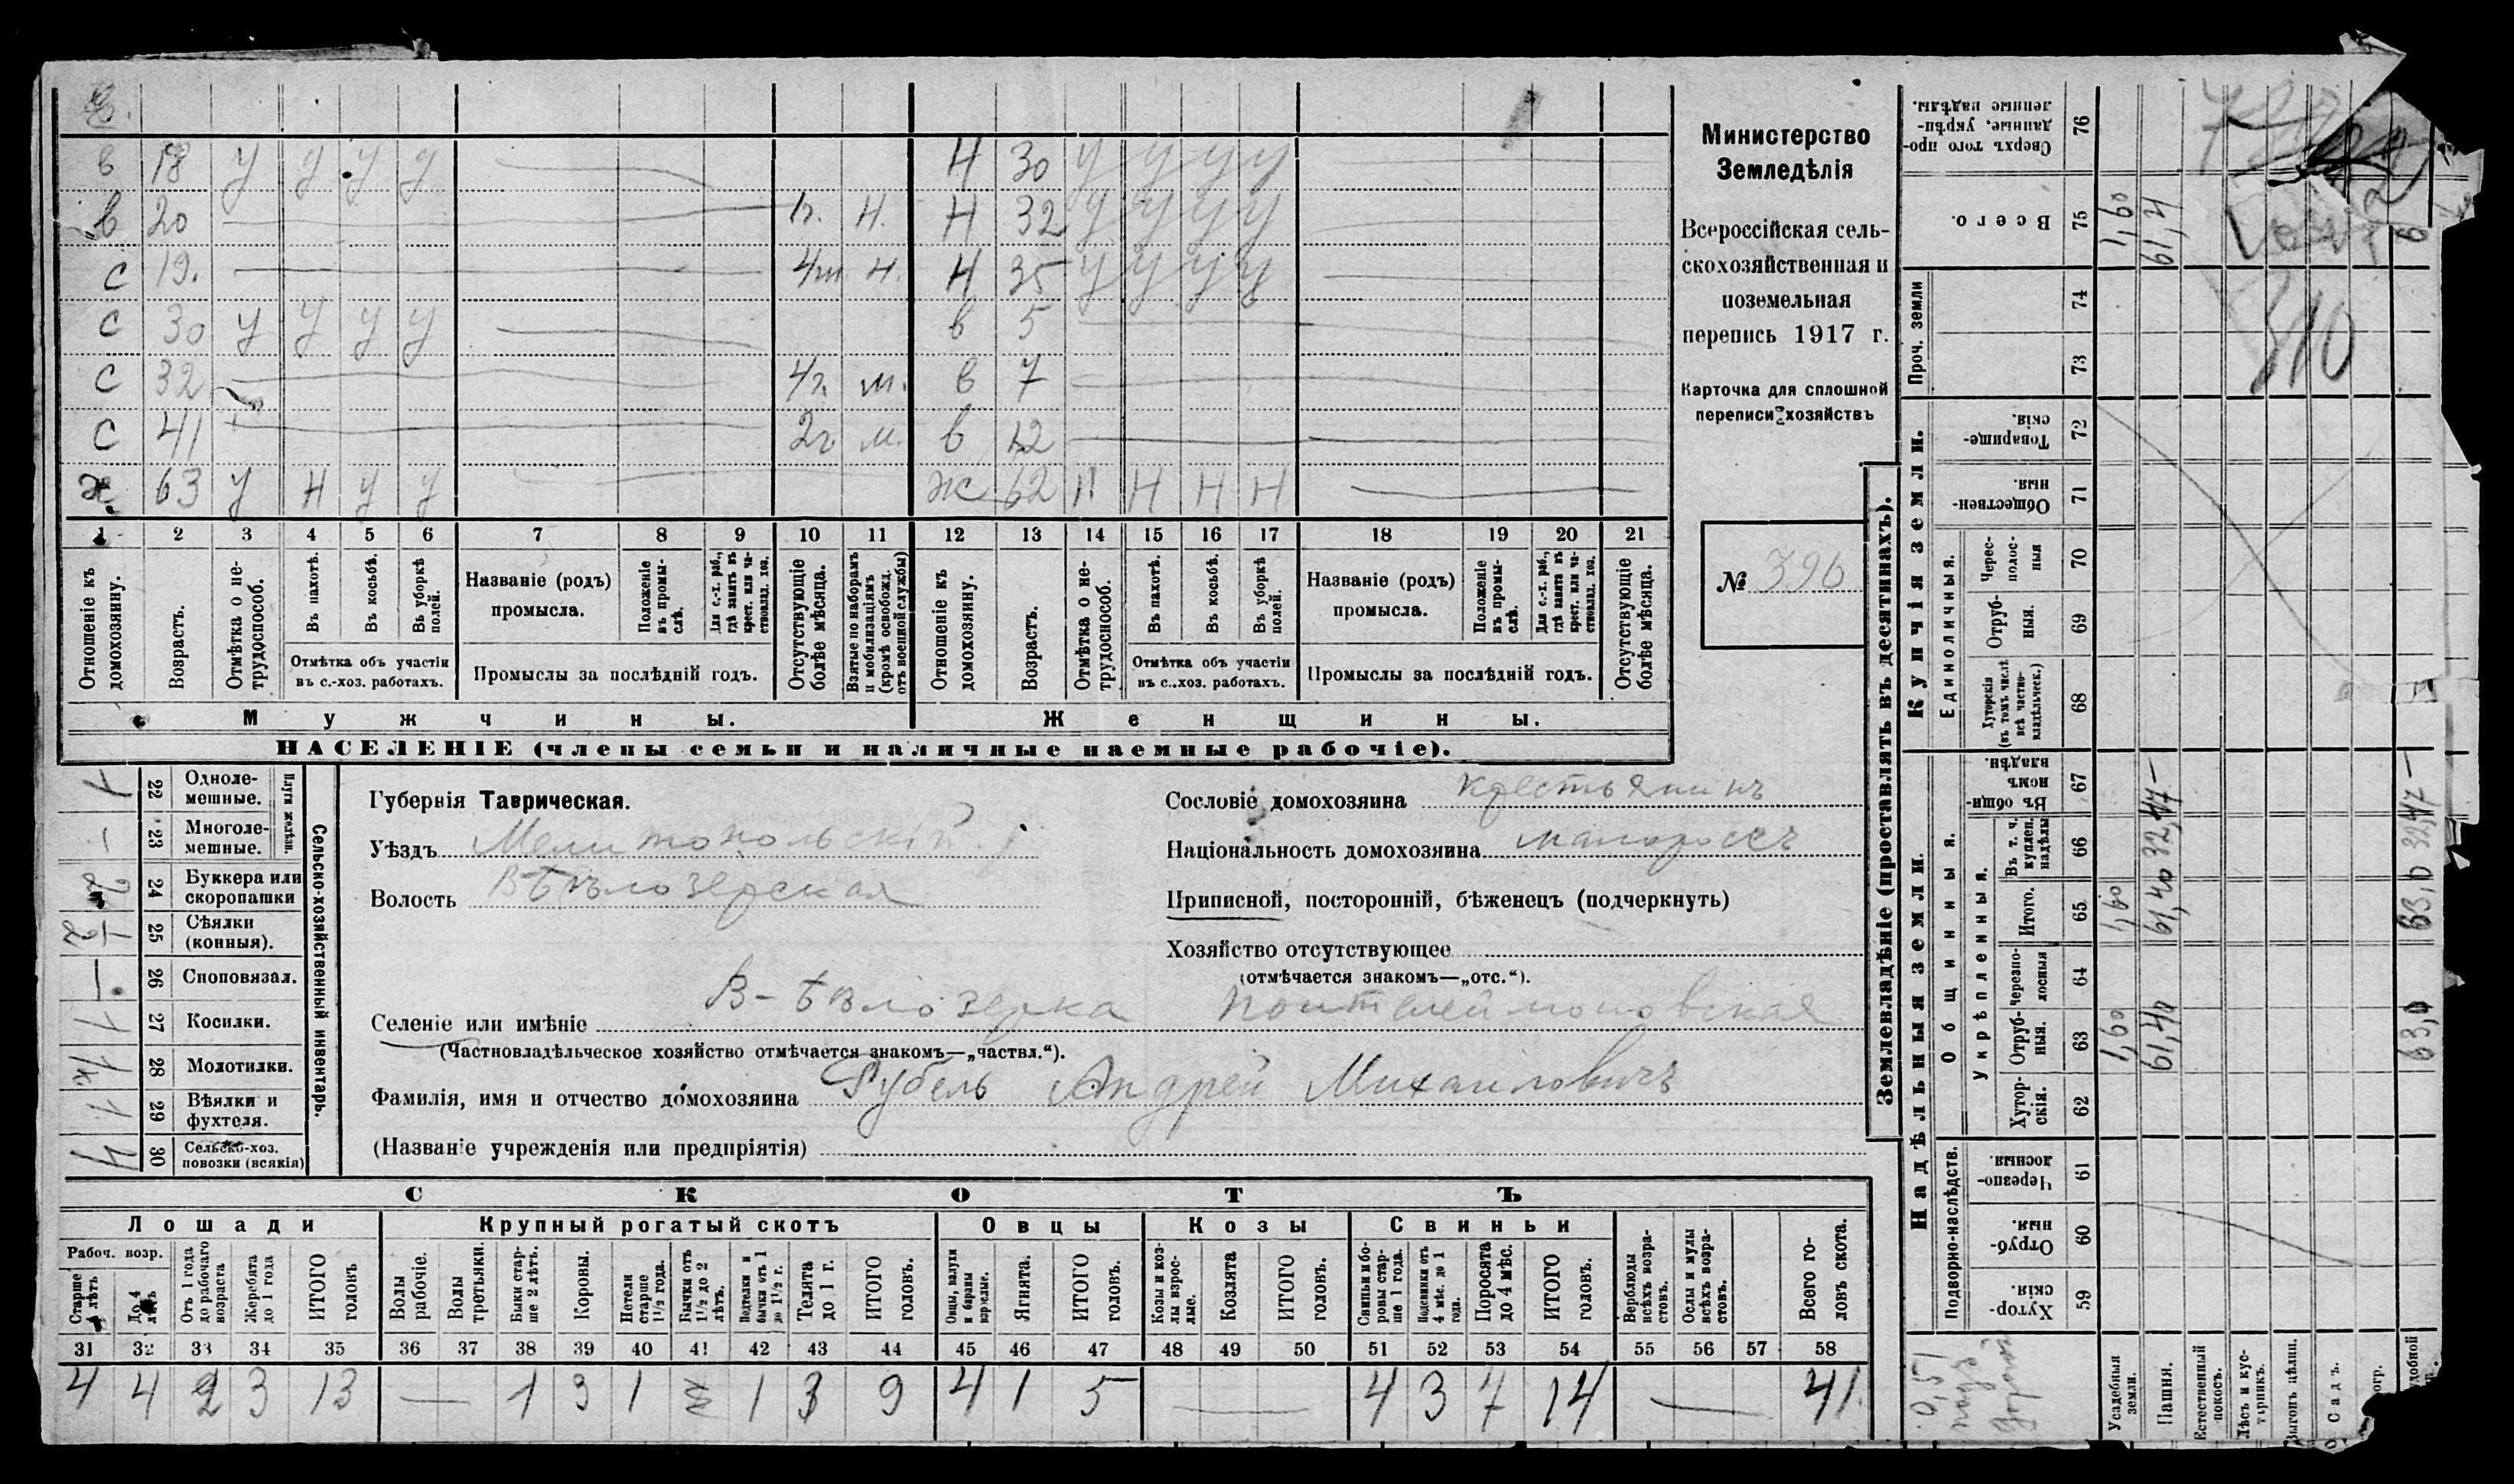 в 18 у у у у — Н 30 у у у у —
в 20 — Н. Н 32 у у у у —
с 19. — Н. Н 35 у у у у —
с 30 у у у у — в 5 —
с 32 — 4г. м. в 7 —
с 41 — 2г м. в 12 —
ж. 63 у Н у у — ж 62 Н Н Н Н —
1 2 3 4 5 6 7 8 9 10 11 12 13 14 15 16 17 18 19 20 21
Отношеніе къ домохозяину.
Возрастъ.
Отмѣтка о не-
трудоспособ.
Въ пахотѣ.
Въ косьбѣ.
Въ уборкѣ полей.
Отмѣтка объ участіи
въ с.-хоз. работахъ.
Названіе (родъ)
промысла.
Положеніе въ промы-
слѣ.
Для с.-х. раб., гдѣ занятъ въ крест. или ча-
ствовлад. хоз.
Промыслы за послѣдній годъ.
Отсутствующіе болѣе мѣсяца.
Взятые по наборамъ и мобилизаціямъ (кромѣ освобожд. отъ военной службы)
Отношеніе къ домохозяину.
Возрастъ.
Отмѣтка о не-
трудоспособ.
Въ пахотѣ.
Въ косьбѣ.
Въ уборкѣ полей.
Отмѣтка объ участіи
въ с.-хоз. работахъ.
Названіе (родъ)
промысла.
Положеніе въ промы-
слѣ.
Для с.-х. раб., гдѣ занятъ въ крест. или ча-
ствовлад. хоз.
Промыслы за послѣдній годъ.
Отсутствующіе болѣе мѣсяца.
Мужчины.
Женщины.
НАСЕЛЕНІЕ (члены семьи и наличные наемные рабочіе).
Министерство
Земледѣлія
Всероссійская сель-
скохозяйственная и
поземельная
перепись 1917 г.
Карточка для сплошной
переписи хозяйствъ
№ 396
Плуги желѣзн.
1 22 Однолемешные.
— 23 Многолемешные.
2 24 Буккера или скоропашки
1/2 25 Сѣялки (конныя).
— 26 Сноповязал.
1 27 Косилки.
1к 28 Молотилки.
1 29 Вѣялки и фухтеля.
4 30 Сельско-хоз. повозки (всякія)
Сельско-хозяйственный инвентарь.
Губернія Таврическая.
Уѣздъ Мелитопольскій
Волость В Бѣлозерская
Сословіе домохозяина крестьянинъ
Національность домохозяина малороссъ
Приписной, посторонній, бѣженецъ (подчеркнуть)
Хозяйство отсутствующее
(отмѣчается знакомъ—„отс.“).
Селеніе или имѣніе В-Бѣлозерка
(Частновладѣльческое хозяйство отмѣчается знакомъ—„частвл.“).
Фамилія, имя и отчество домохозяина Рубель Андрей Михаиловичъ
(Названіе учрежденія или предпріятія)
СКОТЪ
Лошади Крупный рогатый скотъ Овцы Козы Свиньи
Рабоч. возр.
Старше 4 лѣтъ
До 4 лѣтъ
Отъ 1 года до рабочаго возраста
Жеребята до 1 года
ИТОГО головъ
Волы рабочіе.
Волы третьяки.
Быки стар-
ше 2 лѣтъ.
Коровы.
Нетели старше 1½ года.
Бычки отъ 1½ до 2 лѣтъ.
Подтелки и бычки отъ 1 до 1½ г.
Телята до 1 г.
ИТОГО головъ.
Овцы, валухи и бараны взрослые.
Ягнята.
ИТОГО головъ.
Козы и коз-
лы взрос-
лые.
Козлята
ИТОГО головъ.
Свиньи и бо-
ровы стар-
ше 1 года.
Подсвинки отъ 4 мѣс. до 1 года.
Поросята до 4 мѣс.
ИТОГО головъ.
Верблюды всѣхъ возра-
стовъ.
Ослы и мулы всѣхъ возра-
стовъ.
Всего го-
ловъ скота.
31 32 33 34 35 36 37 38 39 40 41 42 43 44 45 46 47 48 49 50 51 52 53 54 55 56 57 58
4 4 2 3 13 — 1 3 1 1 3 9 4 1 5 — 4 3 7 14 — 41
Землевладѣніе (проставлять въ десятинахъ).
Надѣльныя земли.
Купчія земли.
Проч. земли
Подворно-наслѣдств.
Общинныя.
Укрѣпленныя.
Единоличныя.
Хутор-
скія. 59
Отруб-
ныя. 60
Черезпо-
лосныя. 61
Хутор-
скія. 62
Отруб-
ныя. 63
Черезпо-
лосныя 64
Итого. 65
Въ т. ч. куплен. надѣлы 66
Въ общин-
номъ владѣн. 67
Хуторскія (въ томъ числѣ всѣ частно-
владѣльческ.) 68
Отруб-
ныя. 69
Черес-
полос-
ныя 70
Обществен-
ныя. 71
Товарище-
скія. 72
73
74
Всего. 75
Сверхъ того про-
данные, укрѣп-
ленные надѣлы. 76
0,51 подъ дорогой
Усадебныя земли. 1,60 1,60 1,60
Пашня. 61,40 61,40 32,47 — 61,4
Естественный покосъ.
Лѣсъ и кус-
тарникъ.
Выгонъ цѣлин.
Садъ.
63,0 63,0 32,47 —
310